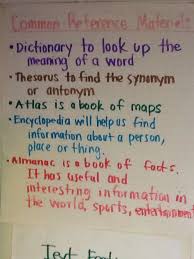 Common Reference Materials
• Dictionary to look up the
meaning of a word
• Thesorus to find the synonym
or antonym
• Atlas is a book of maps
• Encyclopedia will help us find
information about a person,
place or thing.
• Almanac is a book of facts.
It has useful and
interesting information in
the world, sports, entertainment
Text